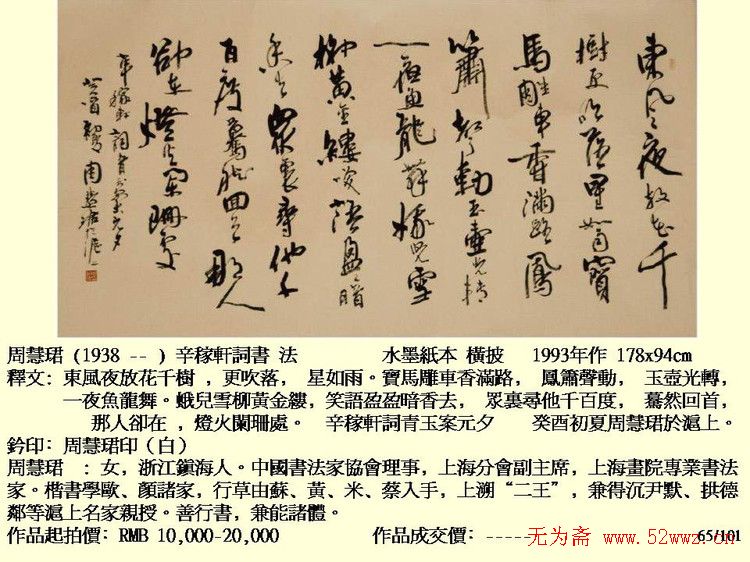 東風夜放花千
樹更吹落星如雨寶
馬雕車香滿路鳳
簫聲動玉壺光轉
一夜魚龍舞蛾兒雪
柳黃金縷笑語盈盈暗
香去眾裏尋他千
百度驀然回首那人
卻在燈火闌珊處
辛稼軒詞青玉案元夕
癸酉初夏周慧珺於滬上
周慧珺 (1938 -- ) 辛稼軒詞書 法 水墨紙本 橫披 1993年作 178x94cm
釋文: 東風夜放花千樹 , 更吹落, 星如雨。寶馬雕車香滿路, 鳳簫聲動, 玉壺光轉,
一夜魚龍舞。蛾兒雪柳黃金縷, 笑語盈盈暗香去, 眾裏尋他千百度, 驀然回首,
那人卻在 , 燈火闌珊處。 辛稼軒詞青玉案元夕 癸酉初夏周慧珺於滬上。
鈐印: 周慧珺印 (白)
周慧珺 : 女, 浙江鎮海人。中國書法家協會理事, 上海分會副主席, 上海畫院專業書法
家。楷書學歐、顏諸家, 行草由蘇、黃、米、蔡入手, 上溯“二王”, 兼得沉尹默、拱德
鄰等滬上名家親授。善行書, 兼能諸體。
作品起拍價: RMB 10,000-20,000 作品成交價: ------ 65/101
无为斋 www.52wwz.cn